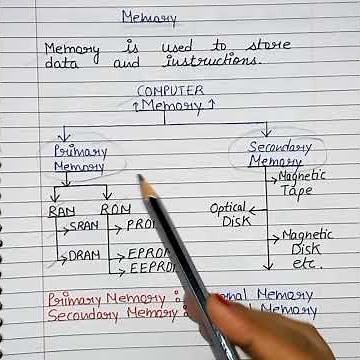 Memory
Memory is used to store
data and instructions.
COMPUTER
Memory
Primary
Memory
Secondary
Memory
Magnetic
Tape
Optical
Disk
Magnetic
Disk
etc.
RAM
ROM
SRAM
DRAM
PRO
EPROM
EEPROM
Primary Memory :
Memory
Secondary Memory :
Memory